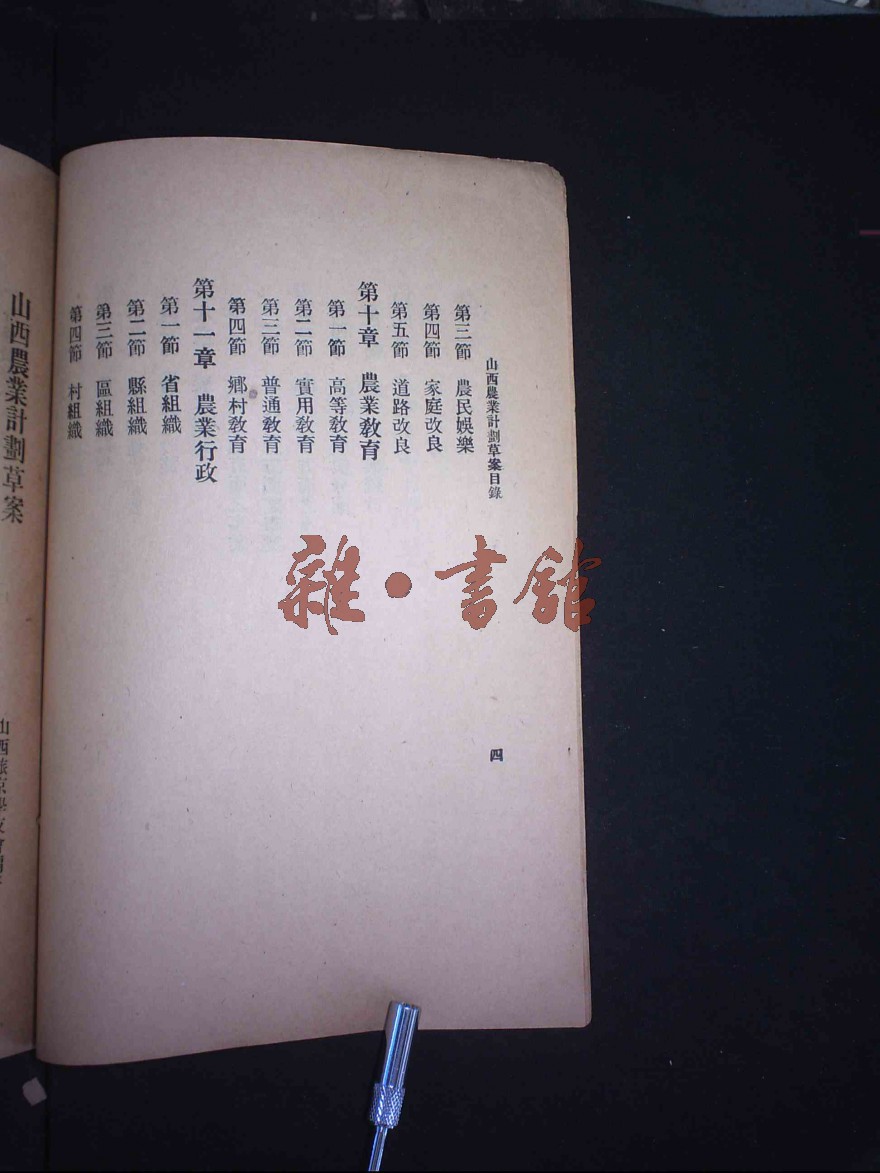 山西農業計劃草案目錄
第三節 農民娛樂
第四節 家庭改良
第五節 道路改良
第十章 農業教育
第一節 高等教育
第二節 實用教育
第三節 普通教育
第四節 鄉村教育
第十一章 農業行政
第一節 省組織
第二節 縣組織
第三節 區組織
第四節 村組織
四
山西農業計劃草案
山西旅京學友會
雜·書館